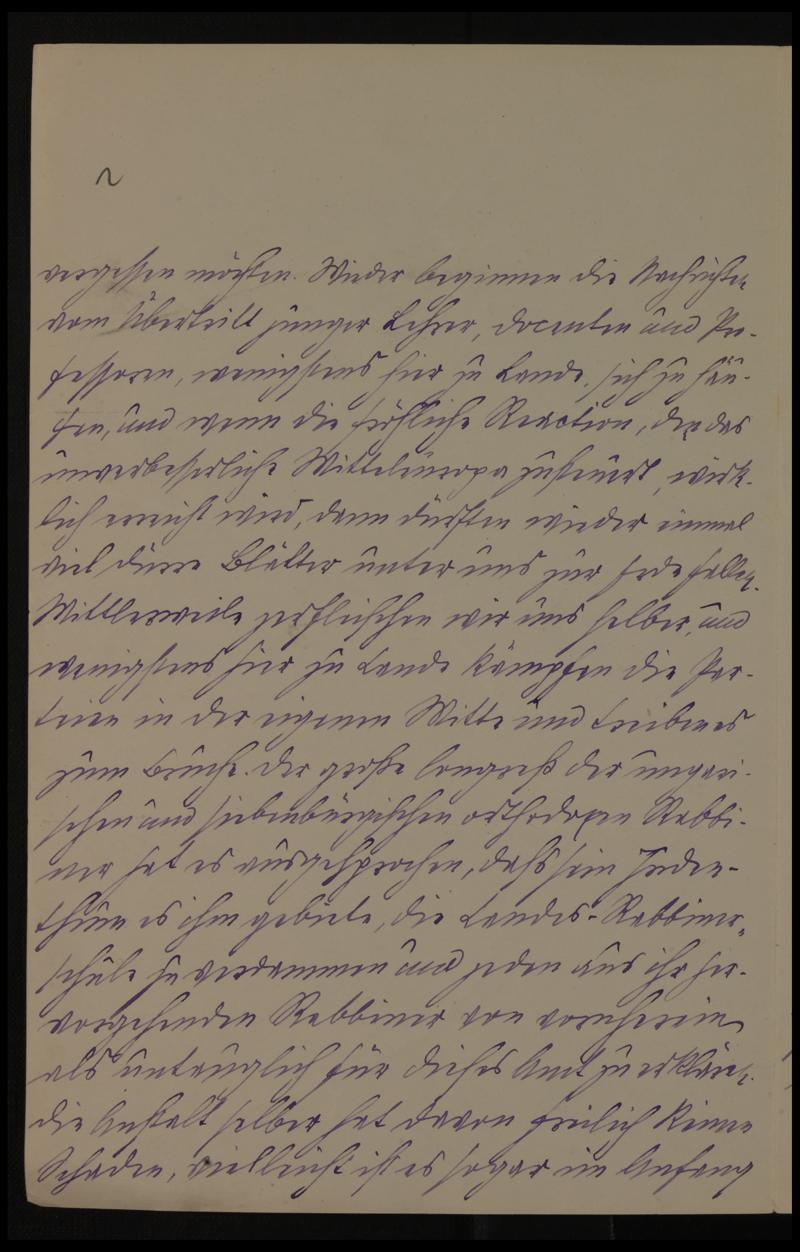 2
vergessen möchten. Wieder beginnen die Nachrichten
vom Übertritt junger Lehrer, Docenten und Pro-
fessoren, wenigstens hier zu Lande, sich zu häu-
fen, und wenn die fröhliche Reaction, der das
unverbesserliche Mitteleuropa zusteuert, wirk-
lich erreicht wird, dann dürften wieder einmal
viel dürre Blätter unter uns zur Erde fallen.
Mittlerweile zerfleischen wir uns selber, und
wenigstens hier zu Lande kämpfen die Par-
teien in der eigenen Mitte und treiben es
zum Bruche. Der große Congreß der ungari-
schen und siebenbürgischen orthodoxen Rabbi-
ner hat es ausgesprochen, dass sein Juden-
thum es ihm gebiete, die Landes-Rabbiner-
schule zu verdammen und jeden aus ihr her-
vorgehenden Rabbiner von vornherein
als untauglich für dieses Amt zu erklären.
Die Anstalt selber hat davon freilich keinen
Schaden, vielleicht ist es sogar im Anfang